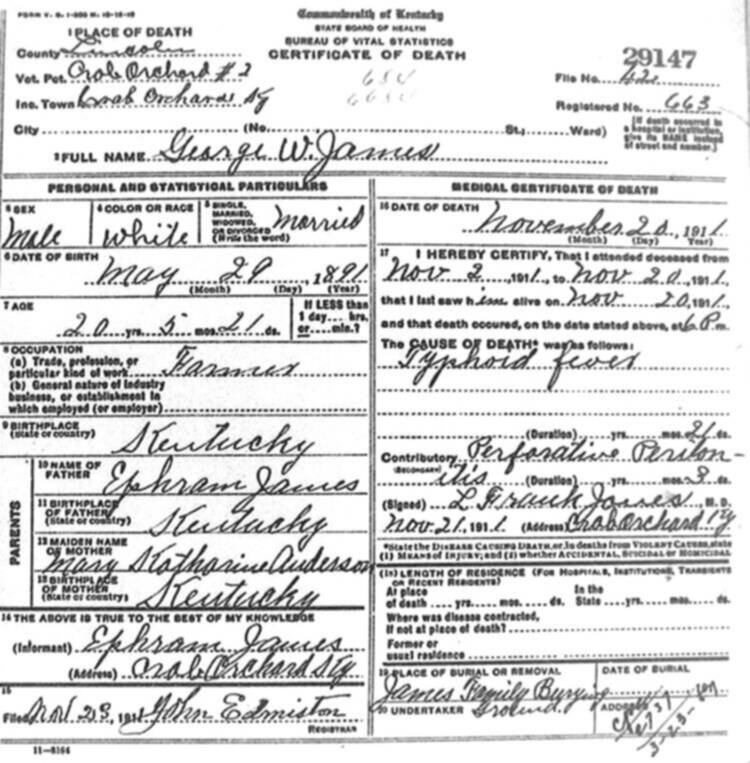 FORM V. S. 1-300 M. 10-12-10
Commonwealth of Kentucky
STATE BOARD OF HEALTH
BUREAU OF VITAL STATISTICS
CERTIFICATE OF DEATH
1 PLACE OF DEATH
County Lincoln
Vot. Pct. Crab Orchard #2
Inc. Town Crab Orchard Ky
29147
File No.
Registered No. 663
City (No. St.; Ward)
[If death occurred in a hospital or institution, give its NAME instead of street and number.]
2 FULL NAME George W. James
PERSONAL AND STATISTICAL PARTICULARS
3 SEX
Male
4 COLOR OR RACE
White
5 SINGLE, MARRIED, WIDOWED, OR DIVORCED (Write the word)
Married
6 DATE OF BIRTH
May 29 1891
(Month) (Day) (Year)
7 AGE
20 yrs. 5 mos. 21 ds.
If LESS than 1 day... hrs. or... min.?
8 OCCUPATION
(a) Trade, profession, or particular kind of work Farmer
(b) General nature of industry
business, or establishment in
which employed (or employer)
9 BIRTHPLACE
(State or country)
Kentucky
PARENTS
10 NAME OF FATHER
Ephram James
11 BIRTHPLACE OF FATHER
(State or country)
Kentucky
12 MAIDEN NAME OF MOTHER
Mary Katharine Anderson
13 BIRTHPLACE OF MOTHER
(State or country)
Kentucky
14 THE ABOVE IS TRUE TO THE BEST OF MY KNOWLEDGE
(Informant) Ephram James
(Address) Crab Orchard Ky
15
Filed Nov 23, 1911 John Edmiston
REGISTRAR
11-8164
MEDICAL CERTIFICATE OF DEATH
16 DATE OF DEATH
November 20, 1911
(Month) (Day) (Year)
17 I HEREBY CERTIFY, That I attended deceased from
Nov 2, 1911, to Nov 20, 1911,
that I last saw him alive on Nov 20, 1911,
and that death occured, on the date stated above, at 6 P.m.
The CAUSE OF DEATH* was as follows:
Typhoid fever
(Duration) yrs. mos. 21 ds.
Contributory Perforative Periton-
(SECONDARY)
itis (Duration) yrs. mos. 3 ds.
(Signed) L Frank Jones, M. D.
Nov. 21, 1911 (Address) Crab Orchard Ky
*State the DISEASE CAUSING DEATH, or, in deaths from VIOLENT CAUSES, state
(1) MEANS OF INJURY; and (2) whether ACCIDENTAL, SUICIDAL or HOMICIDAL
(18) LENGTH OF RESIDENCE (FOR HOSPITALS, INSTITUTIONS, TRANSIENTS OR RECENT RESIDENTS)
At place of death yrs. mos. ds. In the State yrs. mos. ds.
Where was disease contracted,
If not at place of death?
Former or
usual residence
19 PLACE OF BURIAL OR REMOVAL
James Family Burying
Ground
DATE OF BURIAL
20 UNDERTAKER
ADDRESS